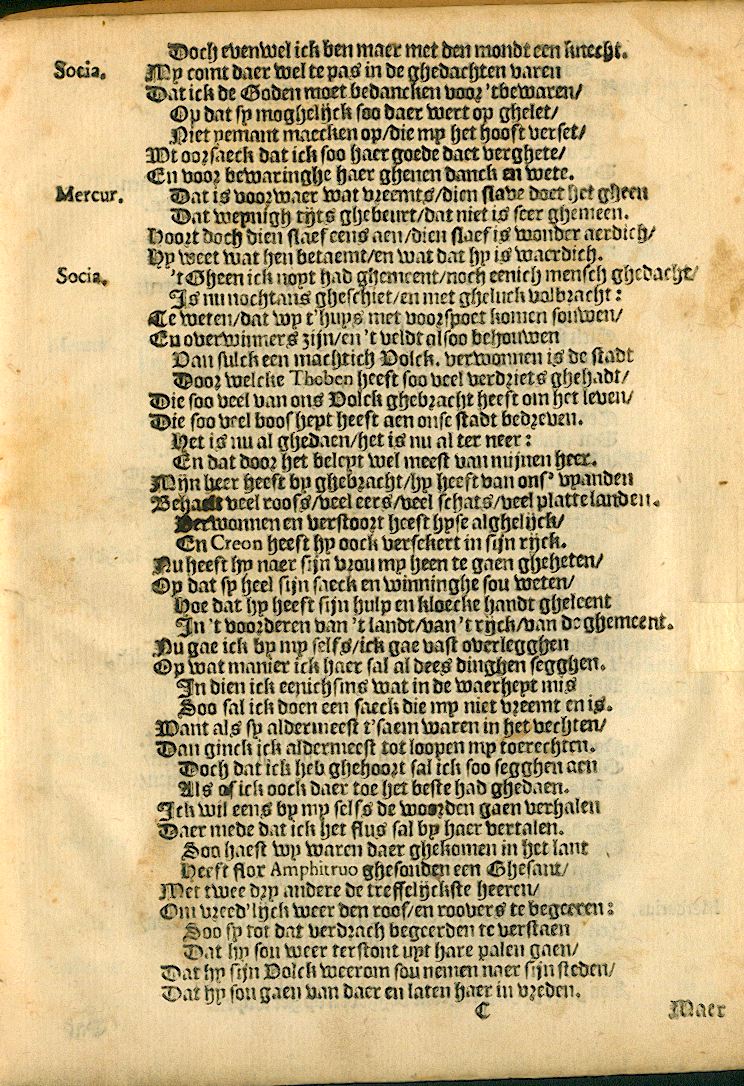 Doch evenwel ick ben maer met den mondt een knecht.
Socia. My comt daer wel te pas in de ghedachten varen
Dat ick de Goden moet bedancken voor 'tbewaren/
Op dat sy moghelijck soo daer wert op ghelet/
Niet yemant maecken op/die my het hooft verset/
Wt oorsaeck dat ick soo haer goede daet verghete/
En voor bewaringhe haer ghenen danck en wete.
Mercur. Dat is voorwaer wat vreemts/dien slave doet het gheen
Dat weynigh tijts ghebeurt/dat niet is seer ghemeen.
Hoort doch dien slaef eens aen/dien slaef is wonder aerdich/
Hy weet wat hen betaemt/en wat dat hy is waerdich.
Socia. 't Gheen ick noyt had ghemeent/noch eenich mensch ghedacht/
Is nu nochtans gheschiet/en met gheluck volbracht:
Te weten/dat wy t'huys met voorspoet komen souwen/
En overwinners zijn/en 't veldt alsoo behouwen
Van sulck een machtich Volck. verwonnen is de stadt
Door welcke Theben heeft soo veel verdriets ghehadt/
Die soo veel van ons Volck ghebracht heeft om het leven/
Die soo veel boosheyt heeft aen onse stadt bedreven.
Het is nu al ghedaen/het is nu al ter neer:
En dat door het beleyt wel meest van mijnen heer.
Mijn heer heeft by ghebracht/hy heeft van ons' vyanden
Behaelt veel roofs/veel eers/veel schats/veel plattelanden.
Verwonnen en verstoort heeft hyse alghelijck/
En Creon heeft hy oock versekert in sijn rijck.
Nu heeft hy naer sijn vrou my heen te gaen gheheten/
Op dat sy heel sijn saeck en winninghe sou weten/
Hoe dat hy heeft sijn hulp en kloecke handt gheleent
In 't voorderen van 't landt/van 't rijck/van de ghemeent.
Nu gae ick by my selfs/ick gae vast overlegghen
Op wat manier ick haer sal al dees dinghen segghen.
In dien ick eenichsins wat in de waerheyt mis
Soo sal ick doen een saeck die my niet vreemt en is.
Want als sy aldermeest t'saem waren in het vechten/
Dan ginck ick aldermeest tot loopen my toerechten.
Doch dat ick heb ghehoort sal ick soo segghen aen
Als of ick oock daer toe het beste had ghedaen.
Ick wil eens by my selfs de woorden gaen verhalen
Daer mede dat ick het flus sal by haer vertalen.
Soo haest wy waren daer ghekomen in het lant
Heeft flor Amphitruo ghesonden een Ghesant/
Met twee dry andere de treffelijckste heeren/
Om vreed'lijck weer den roof/en roovers te begeeren:
Soo sy tot dat verdrach begeerden te verstaen
Dat hy sou weer terstont uyt hare palen gaen/
Dat hy sijn Volck weerom sou nemen naer sijn steden/
Dat hy sou gaen van daer en laten haer in vreden.
C Maer